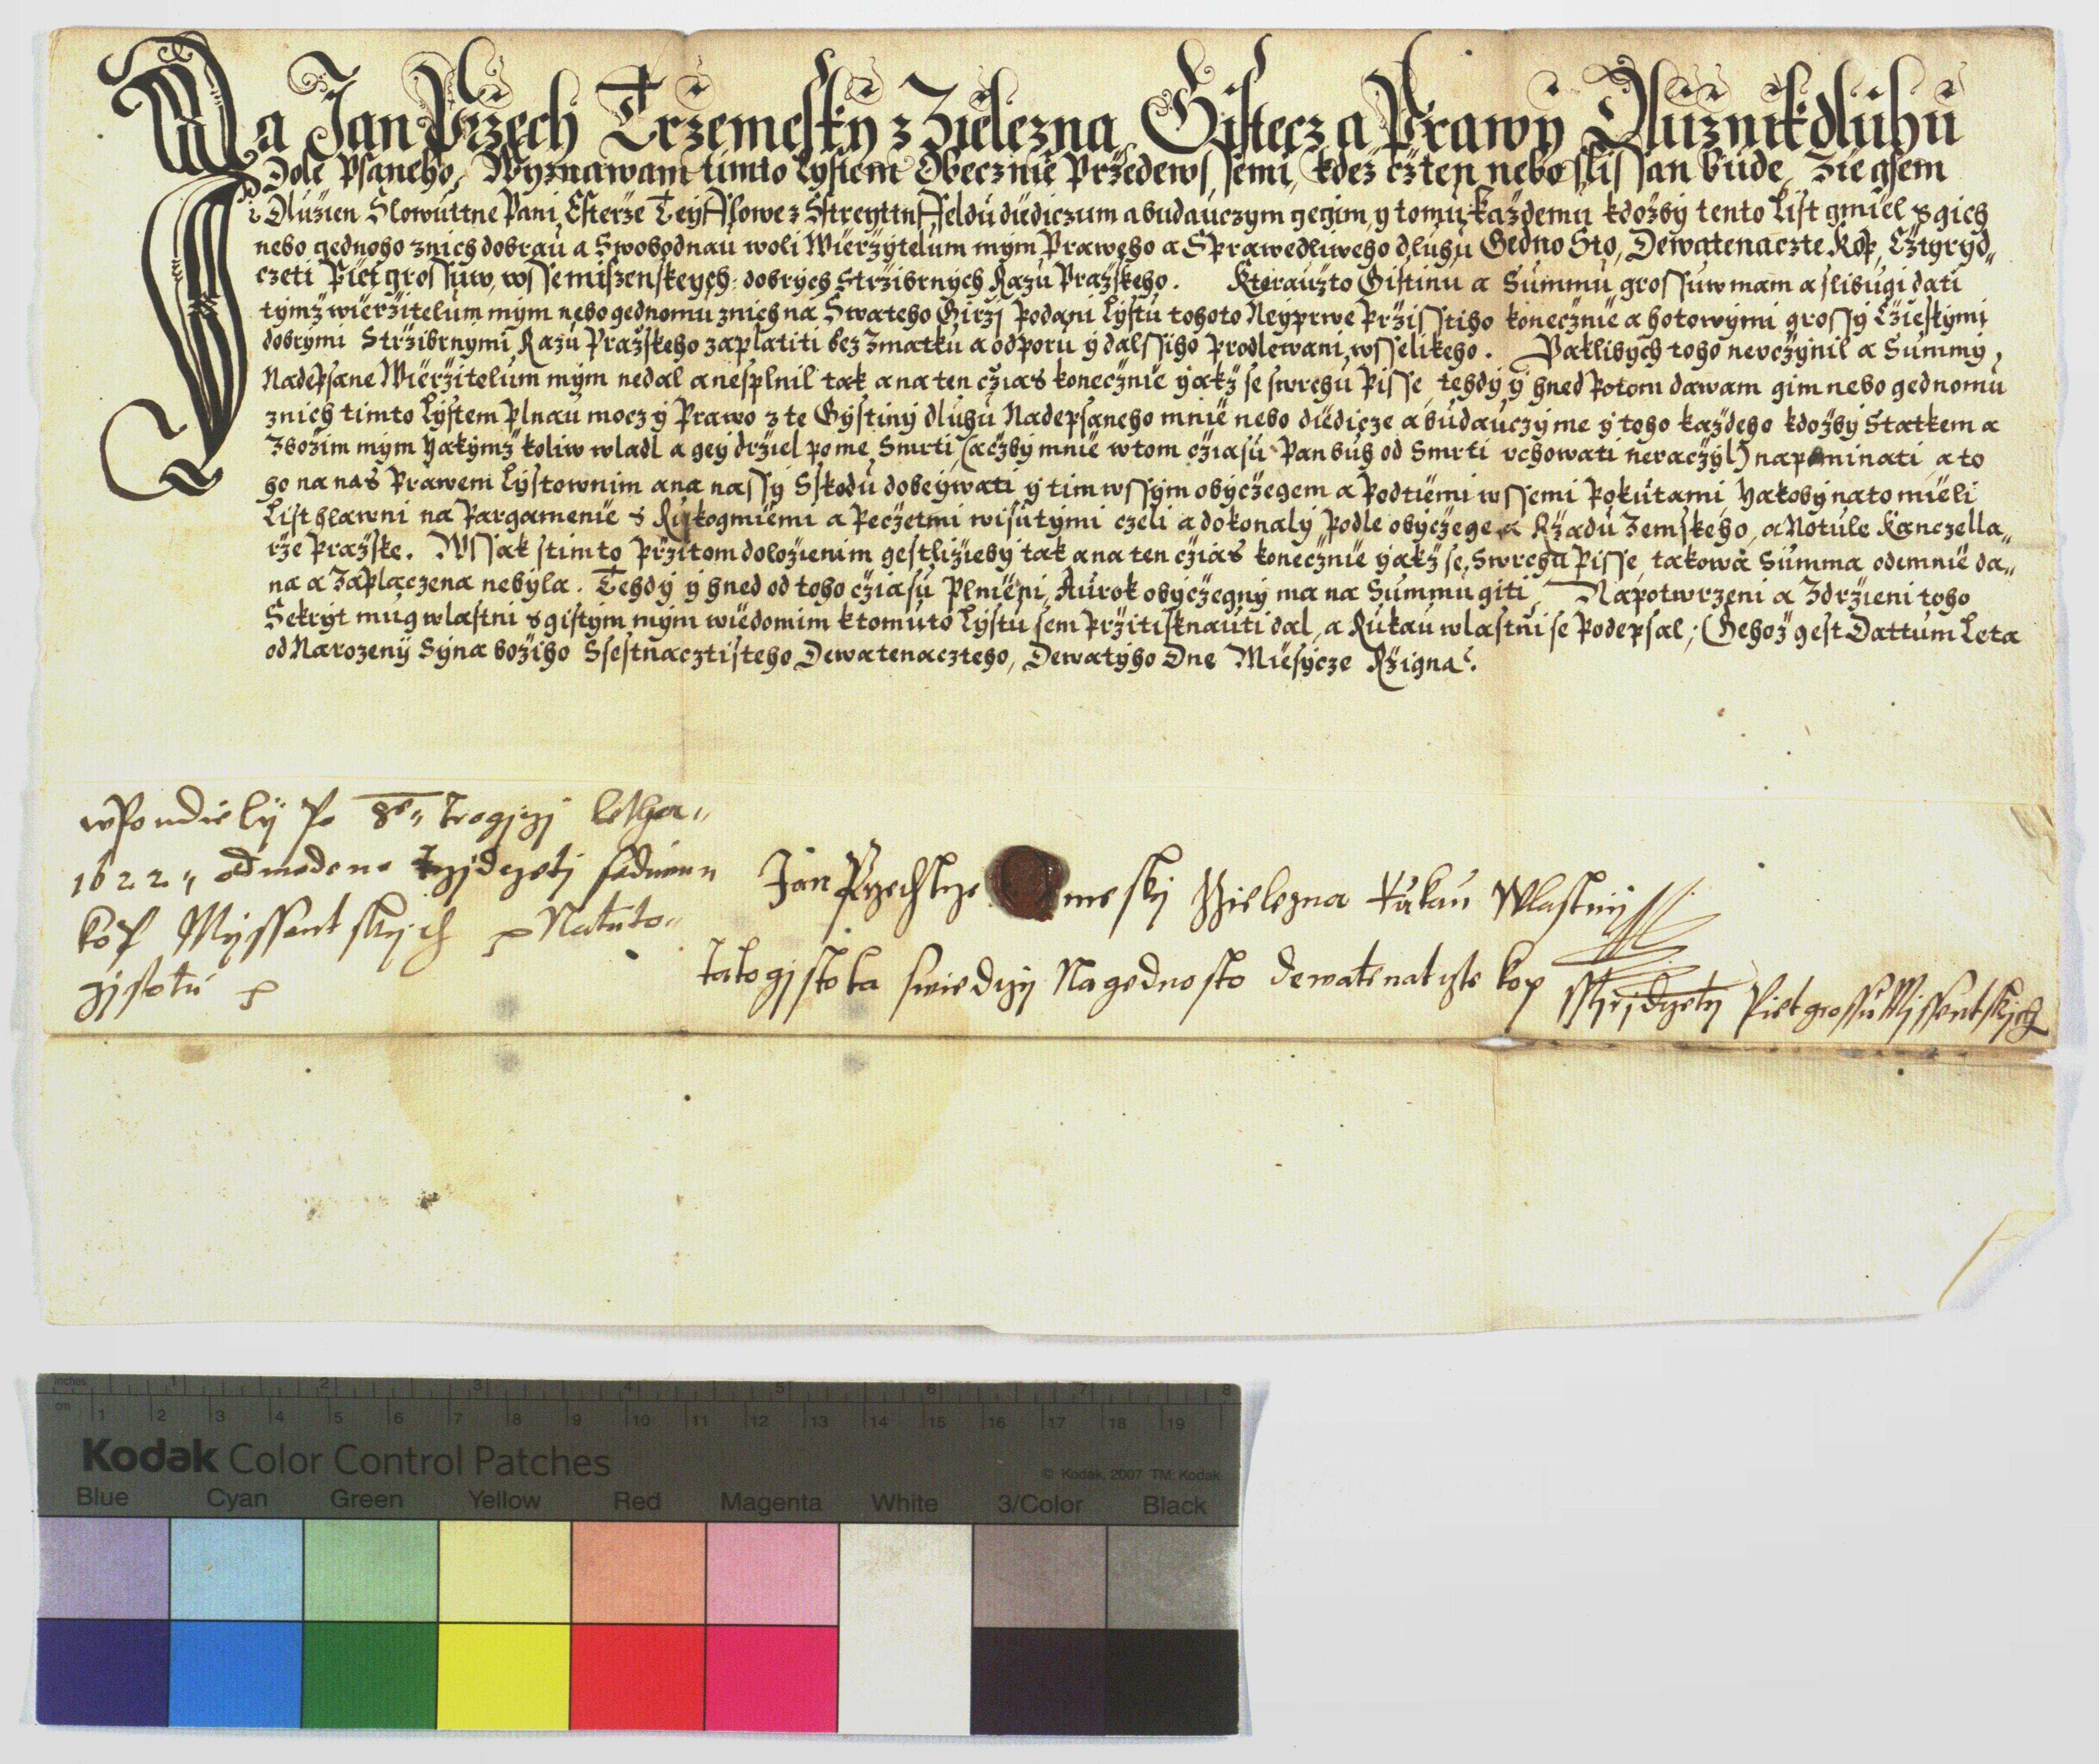 Ja Jan Przech Trzemesky z Zielezna Gistecz a Prawy Dluznik dluhu
Dole Psaneho, Wyznawam timto Lystem Obecznie Przedewssemi, kdez czten nebo slissan bude, Zie gsem
Dluzien Slowuttne Pani Esterze z Streyttnfeldu diediczum a budauczym gegim, y tomu kazdemu kdozby tento List gmiel s gich
nebo gednoho z nich dobrau a Swobodnau woli Wierzytelum mym Praweho a Sprawedliweho dluhu Gedno Sto, Dewatenaczte Kop, Cztyryd„
czeti Piet grossuw, wsse miszenskeych: dobrych Strzibrnych Razu Prazskeho. Kterauzto Gistinu a Summu grossuw mam a slibugi dati
tymz wierzitelum mym nebo gednomu z nich na Swateho Girzj Podani Lystu tohoto Neyprwe Przisstiho konecznie a hotowymi grossy Czieskymi
dobrymi Strzibrnymi Razu Prazskeho zaplatiti bez Zmatku a odporu y dalssiho Prodlewani wsselikeho. Paklibych toho nevczynil a Summy,
Nadepsane Wierzitelum mym nedal a nesplnil tak a na ten czias konecznie yakz se swrchu Pisse, tehdy y hned Potom dawam gim nebo gednomu
z nich timto Lystem Plnau mocz y Prawo z te Gystiny dluhu Nadepsaneho mnie nebo diedicze a budauczy me y toho kazdeho kdozby Statkem a
Zbozim mym Yakymz koliw wladl a gey drziel po me Smrti, (aczby mnie w tom cziasu Pan buh od Smrti vchowati neraczyl) napominati a to
ho na nas Prawem Lystownim a na nassy Sskodu dobeywati y tim wssym obyczegem a Pod tiemi wssemi Pokutami, Yakoby na to mieli
List hlawni na Pargamenie s Rukogmiemi a Peczetmi wisutymi czeli a dokonaly Podle obyczege a Rzadu Zemskeho, a Notule Kanczella„
rze Prazske. Wssak s timto Przitom dolozienim gestlizieby tak a na ten czias konecznie yakz se, Swrchu Pisse, takowa Summa odemnie da„
na a Zaplaczena nebyla. Tehdy y hned od toho cziasu Plnieni, Aurok obyczegny ma na Summu giti, Na potwrzeni a Zdrzieni toho
Sekryt mug wlastni s gistym mym wiedomim k tomuto Lystu sem Przitisknauti dal, a Rukau wlastni se Podepsal; Gehoz gest Dattum Leta
od Narozeny Syna boziho Ssestnacztisteho Dewatenaczteho, Dewatyho Dne Miesycze Rzigna.
w Pondiely Po Trogyzj
1622„ odwedeno sedmnn
kop Myssentskych Na tuto„
gystotu
Jan Przech Trze mesky Zielezna Rukau Wlastny
Tato gystota swiedczy Na gedno sto dewatenatczte kop Piet grossu Myssentskych
Kodak Color Control Patches
© Kodak, 2007 TM: Kodak
Inches 1 2 3 4 5 6 7 8
cm 1 2 3 4 5 6 7 8 9 10 11 12 13 14 15 16 17 18 19
Blue Cyan Green Yellow Red Magenta White 3/Color Black